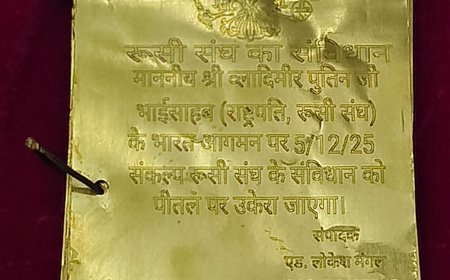 रूसी संघ का संविधान
माननीय श्री व्लादिमीर पुतिन जी
भाईसाहब (राष्ट्रपति, रूसी संघ)
के भारत आगमन पर 5/12/25
संकल्प रूसी संघ के संविधान को
पीतल पर उकेरा जाएगा।
संपादक
एड. लोकेश मंगल